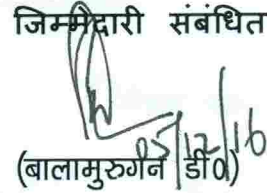 जिम्मेदारी संबंधित
05/12/16
(बालामुरुगन डी0)